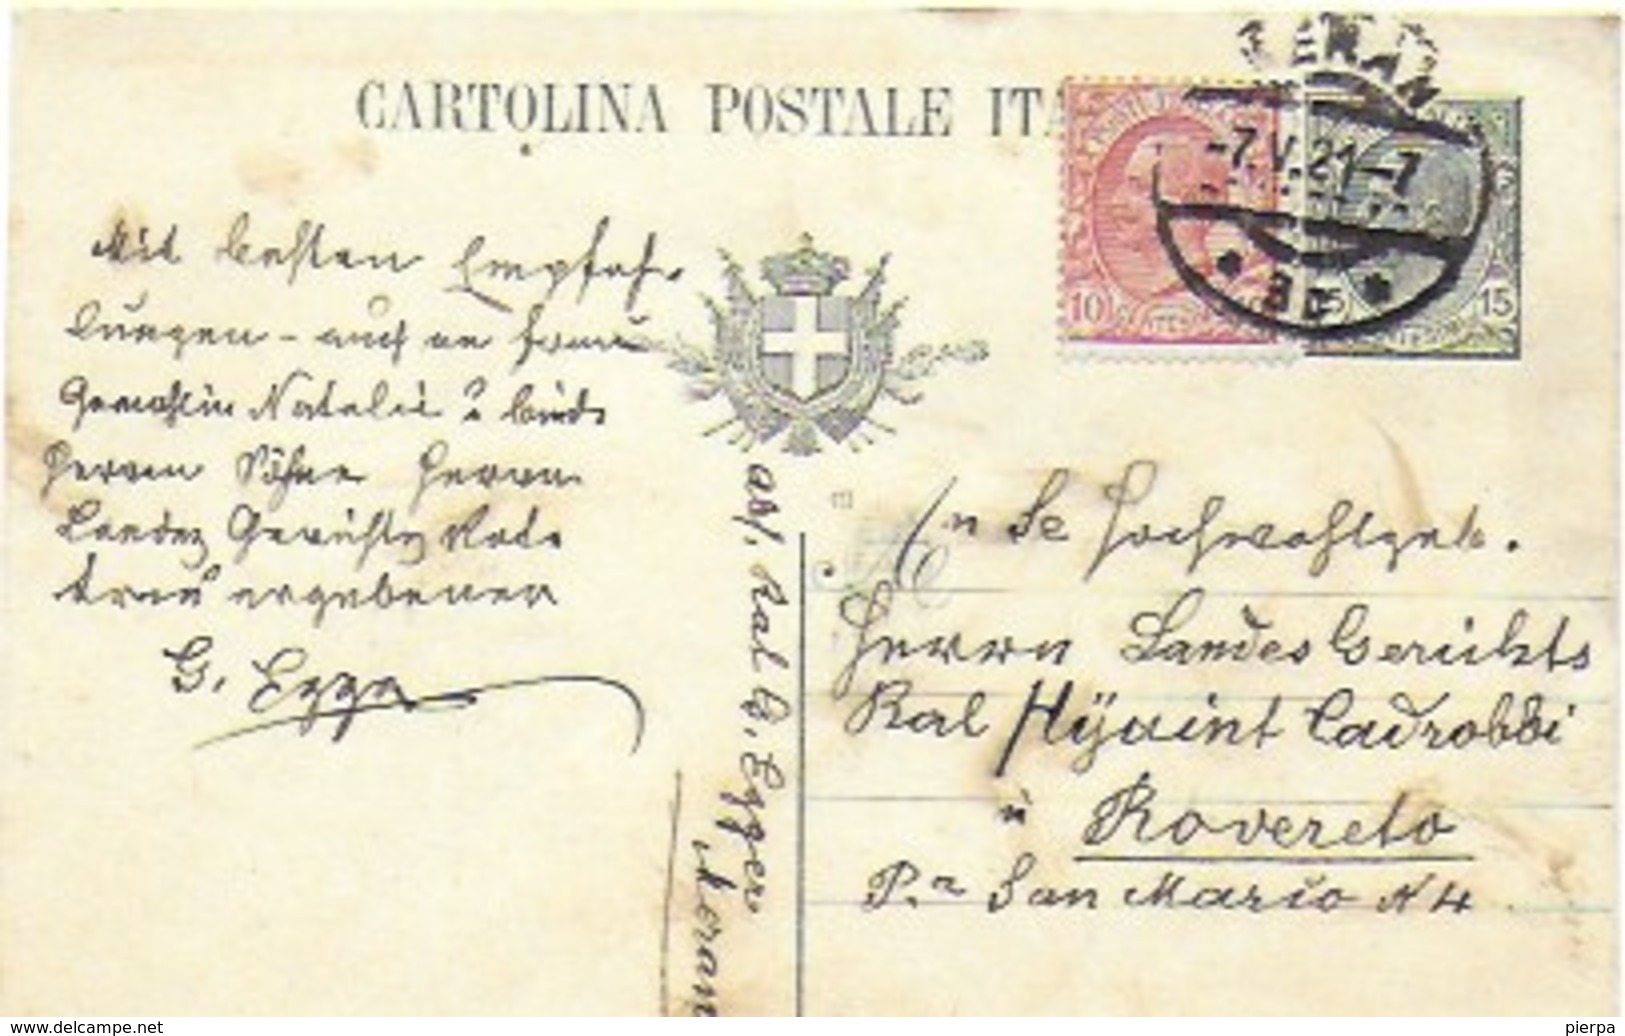 CARTOLINA POSTALE ITA
MERAN
-7.V.21-7
10
15
15
Mit besten Empfeh-
lungen – auch an Frau
Gemahlin Natalie & beide
Herren Söhne Herrn
Landes Gerichts Rate
treu ergebener
G. Egger
abs. Rat G. Eggero
Meran
An Se Hochwohlgeb.
Herrn Landes Gerichts
Rat Hÿacint Cadrobbi
in
Rovereto
P.za San Marco N 4
www.delcampe.net
pierpa